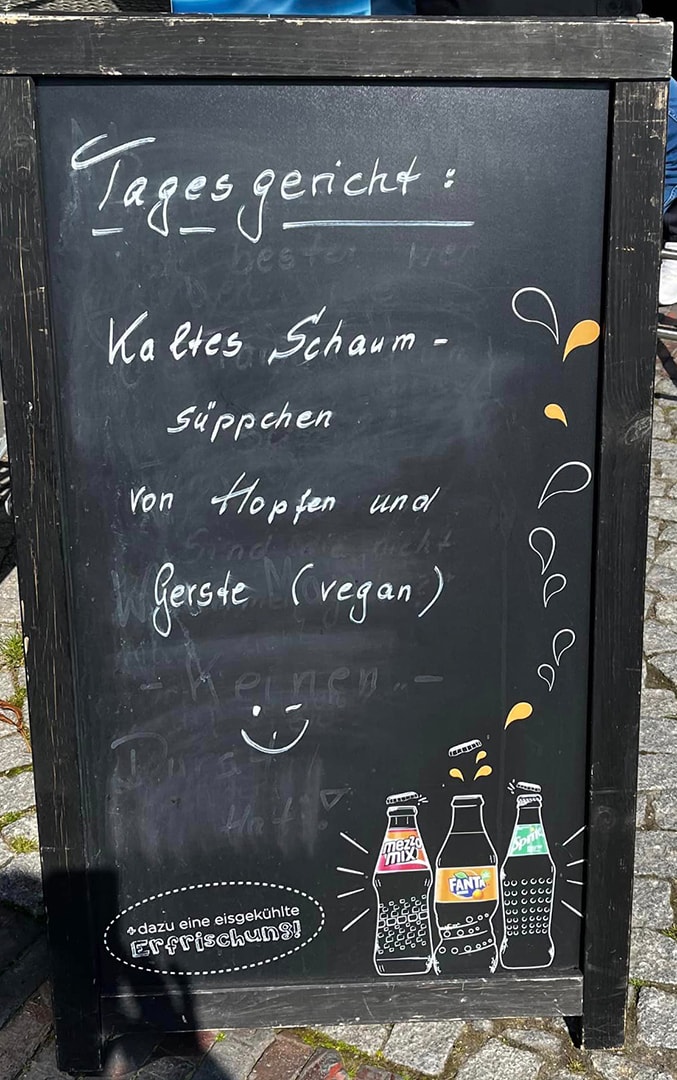 Tagesgericht:
Kaltes Schaum-
süppchen
von Hopfen und
Gerste (vegan)
- Keinen -
mezzo
mix
FANTA
Sprite
+ dazu eine eisgekühlte
Erfrischung!